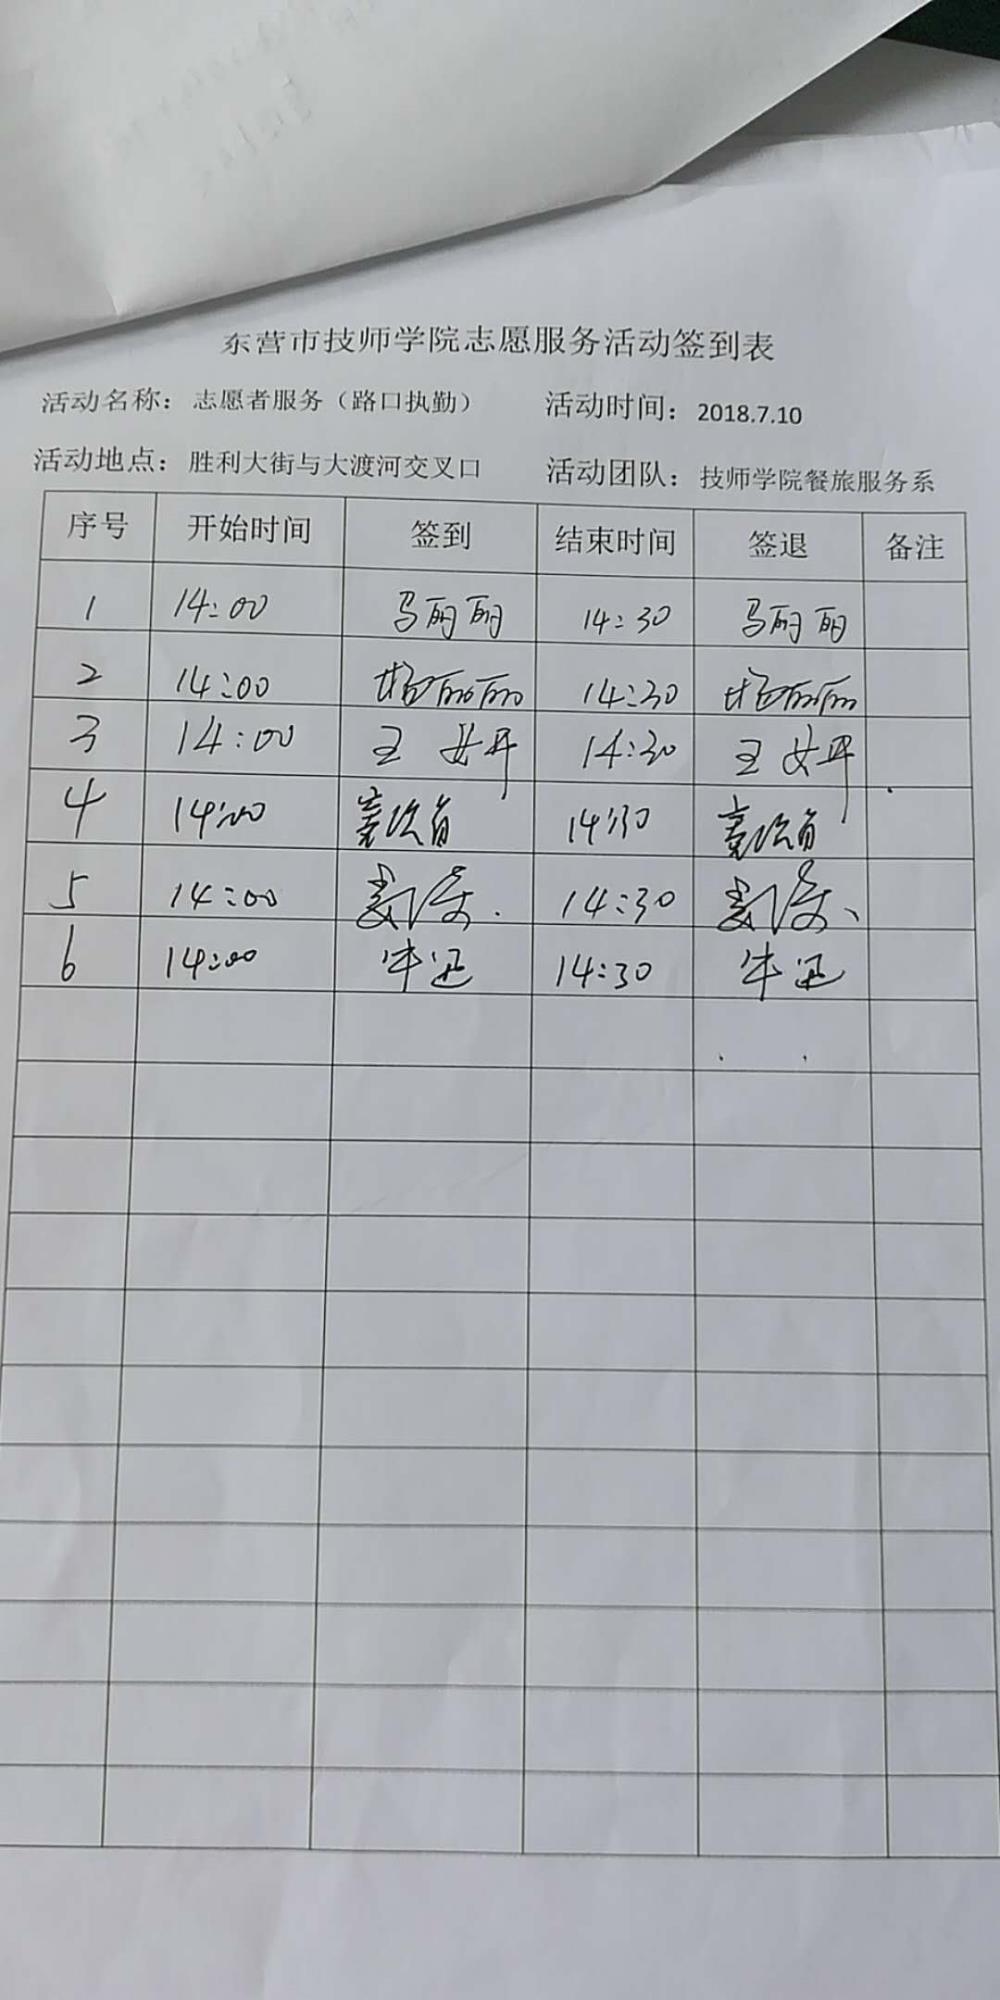 东营市技师学院志愿服务活动签到表
活动名称：志愿者服务（路口执勤） 活动时间：2018.7.10
活动地点：胜利大街与大渡河交叉口 活动团队：技师学院餐旅服务系
序号 开始时间 签到 结束时间 签退 备注
1 14:00 马丽丽 14:30 马丽丽
2 14:00 杨丽丽 14:30 杨丽丽
3 14:00 王 14:30 王
4 14:00 14:30
5 14:00 14:30
6 14:00 牛迅 14:30 牛迅